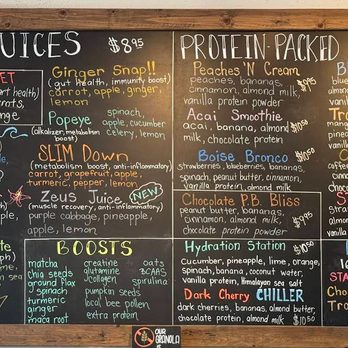 UICES $8.95
ET
rt health)
arrots,
nger
Ginger Snap!!
(gut health, immunity boost)
carrot, apple, ginger,
lemon
Popeye
(alkalizer, metabolism
boost)
spinach,
apple, cucumber
celery, lemon
SLIM Down
(metabolism boost, anti-inflammatory)
carrot, grapefruit, apple,
turmeric, pepper, lemon
Zeus Juice NEW
(muscle recovery, anti-inflammatory)
purple cabbage, pineapple,
apple, lemon
BOOSTS
matcha
chia seeds
ground flax
spinach
turmeric
ginger
maca root
creatine
glutamine
collagen
pea protein
local bee pollen
extra protein
oats
BCAAS
spirulina
OUR
GRANOLA
PROTEIN-PACKED
Peaches 'N Cream
peaches, bananas,
cinnamon, almond milk,
vanilla protein powder
$9.95
Acai Smoothie
acai, banana, almond
milk, chocolate protein
$10.50
Boise Bronco
strawberries, blueberries, bananas,
spinach, peanut butter, cinnamon,
vanilla protein, almond milk
$10.50
Chocolate P.B. Bliss
peanut butter, bananas,
cinnamon, almond milk,
chocolate protein powder
$9.95
Hydration Station $10.50
cucumber, pineapple, lime, orange,
spinach, banana, coconut water,
vanilla protein, Himalayan sea salt
Dark Cherry CHILLER
dark cherries, bananas, almond butter,
chocolate protein, almond milk $10.50